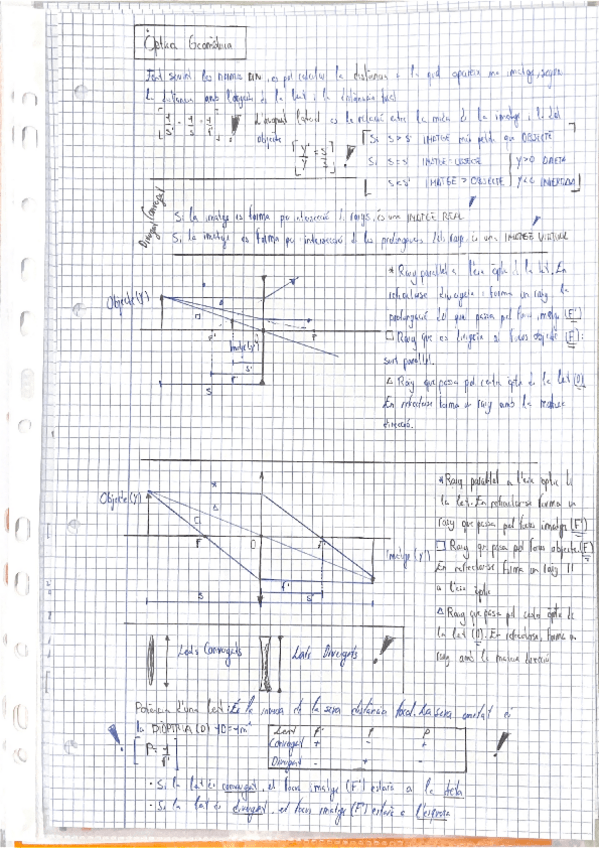 Òptica Geomètrica
Tot seguint les normes DIN, es pot calcular la distància a la qual apareix una imatge, segons
la distància amb l'origen de la lent i la distància focal
[1/s' - 1/s = 1/f'] ! L'augment lateral és la relació entre la mida de la imatge i la del
objecte [y'/y = s'/s] !
[Si s > s' IMATGE més petita que OBJECTE
Si s = s' IMATGE = OBJECTE
s < s' IMATGE > OBJECTE
y > 0 DRETA
y < 0 INVERTIDA]
Si la imatge es forma per intersecció de raigs, és una IMATGE REAL
Si la imatge es forma per intersecció de les prolongacions dels raigs, és una IMATGE VIRTUAL
Objecte (Y)
* Raig paral·lel a l'eix òptic de la lent. En
refractar-se divergeix i forma un raig la
prolongació del qual passa pel focus imatge (F')
□ Raig que es dirigeix al focus objecte (F):
surt paral·lel.
△ Raig que passa pel centre òptic de la lent (O).
En refractar-se forma un raig amb la mateixa
direcció.
Objecte (Y)
Imatge (Y')
F
O
f'
s'
s
* Raig paral·lel a l'eix òptic de
la lent. En refractar-se forma un
raig que passa pel focus imatge (F')
□ Raig que passa pel focus objecte (F)
En refractar-se forma un raig ||
a l'eix òptic
△ Raig que passa pel centre òptic de
la lent (O). En refractar-se, forma un
raig amb la mateixa direcció
Lents Convergents
Lents Divergents !
Potència d'una lent: És la inversa de la seva distància focal. La seva unitat és
la DIÒPTRIA (D)
! [P = 1/f']
Lent F' f P
Convergent + - +
Divergent - + - !
· Si la lent és convergent, el focus imatge (F') estarà a la dreta
· Si la lent és divergent, el focus imatge (F') estarà a l'esquerra